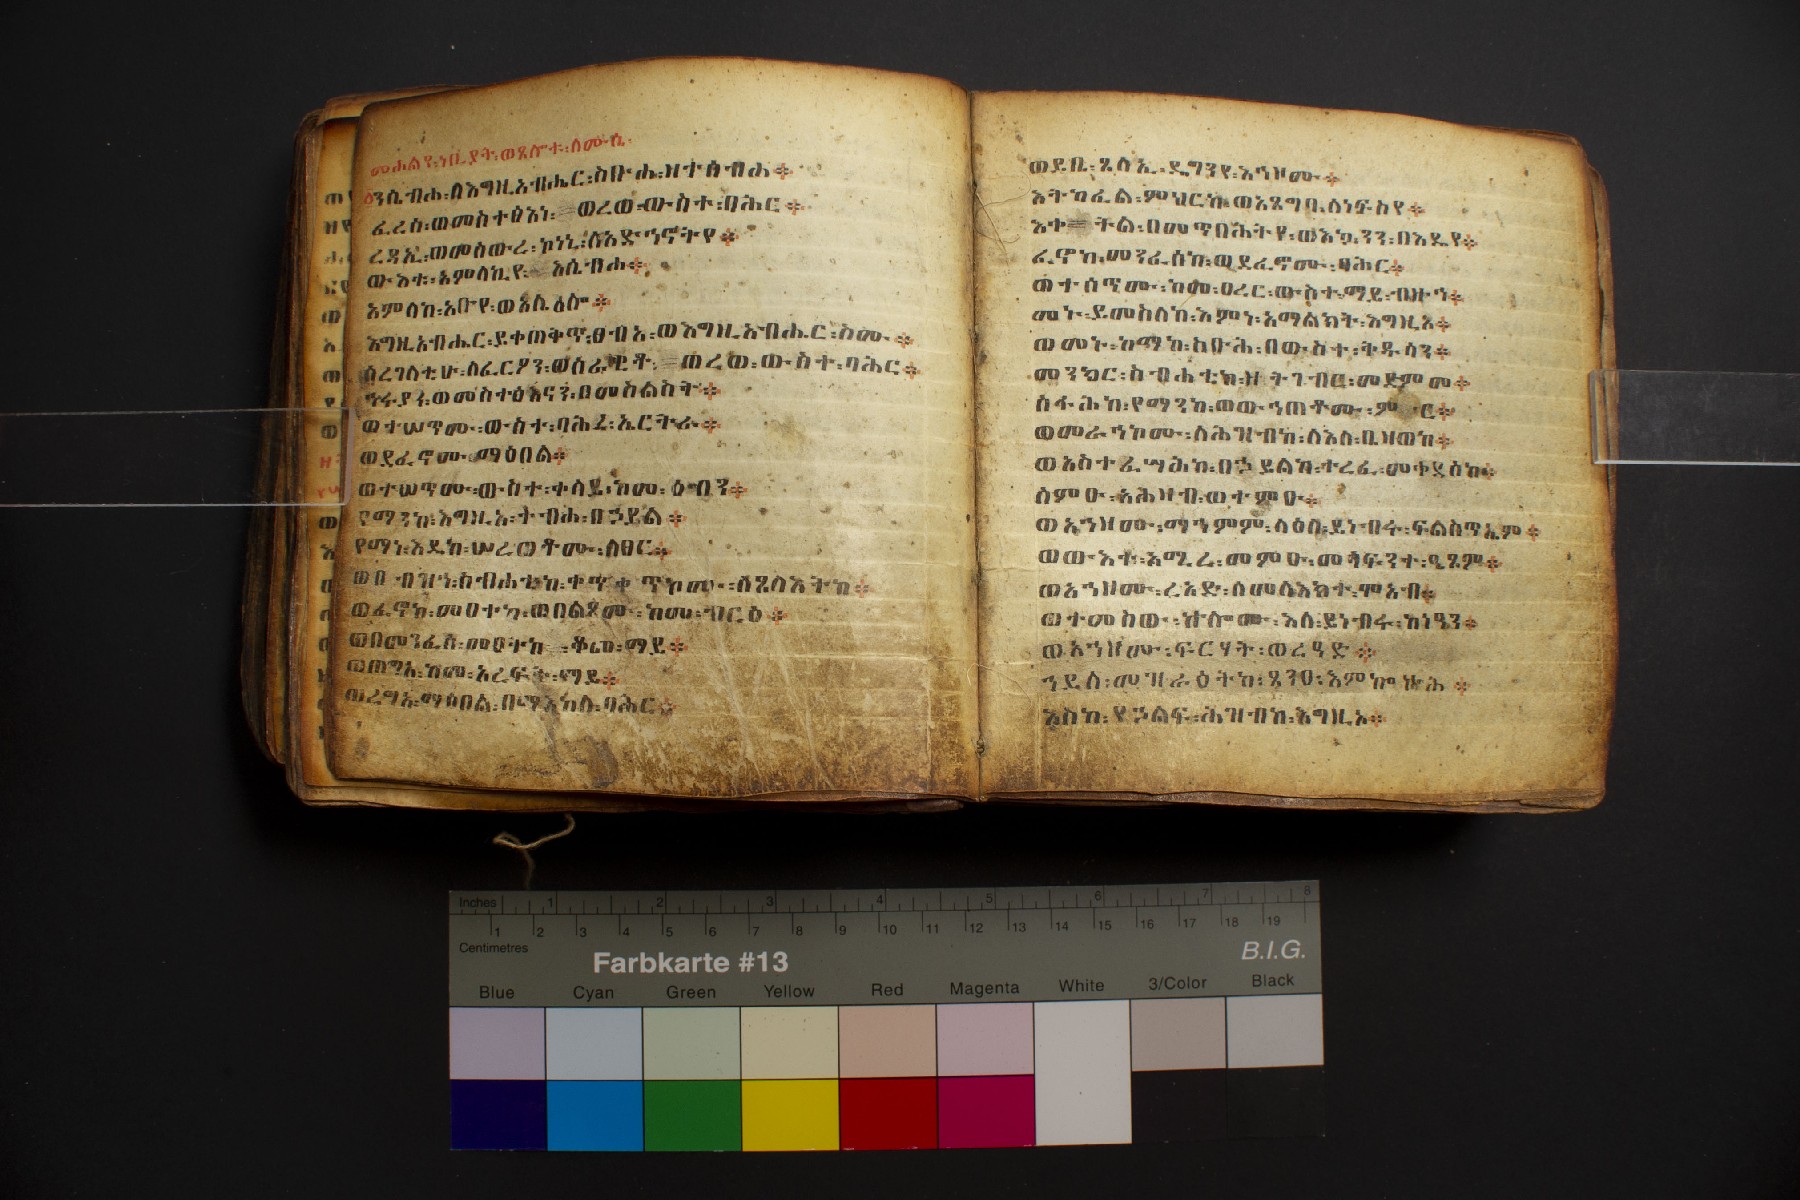 መሐልየ፡ነቢያት፡ወጸሎቱ፡ለሙሴ፡
ንሴብሖ፡ለእግዚአብሔር፡ስቡሕ፡ዘተሰብሐ
ፈረሰ፡ወመስተፅእነ፡ወረወ፡ውስተ፡ባሕር
ረዳኢ፡ወመሰውረ፡ኮነኒ፡ለአድኅኖትየ
ውእቱ፡አምላኪየ፡እሴብሖ
አምላከ፡አቡየ፡ወአሌዕሎ
እግዚአብሔር፡ይቀጠቅጥ፡ፀብአ፡ወእግዚአብሔር፡ስሙ
ሰረገላቲሁ፡ለፈርዖን፡ወሰራዊቶ፡ወረወ፡ውስተ፡ባሕር
ኅሩያነ፡ወመስተፅእናነ፡በመስልስት
ወተሠጥሙ፡ውስተ፡ባሕረ፡ኤርትራ
ወደፈኖሙ፡ማዕበል
ወተሠጥሙ፡ውስተ፡ቀላይ፡ከመ፡ዕብን
የማንከ፡እግዚኦ፡ተብሐ፡በኃይል
የማነ፡እዴከ፡ሠረወቶሙ፡ለፀር
ወበብዝኀ፡ስብሐቲከ፡ቀጥቀጥኮሙ፡ለጸላእትከ
ወፈኖከ፡መዐተከ፡ወበልዖሙ፡ከመ፡ብርዕ
ወበመንፈሰ፡መዐትከ፡ቆመ፡ማይ
ወጠግአ፡ከመ፡አረፍት፡ማይ
ወረግአ፡ማዕበል፡በማእከለ፡ባሕር
ወይቤ፡ጸላኢ፡ዴግንየ፡እኅዞሙ
እትካፈል፡ምህርካ፡ወአጸግባ፡ለነፍስየ
እቀትል፡በመጥበሕትየ፡ወእኴንን፡በእዴየ
ፈኖከ፡መንፈሰከ፡ወደፈኖሙ፡ባሕር
ወተሰጥሙ፡ከመ፡ዐረር፡ውስተ፡ማይ፡ብዙኅ
መኑ፡ይመስለከ፡እምነ፡አማልክት፡እግዚኦ
ወመኑ፡ከማከ፡ስቡሕ፡በውስተ፡ቅዱሳን
መንክር፡ስብሐቲከ፡ዘትገብር፡መድምመ
ሰፋሕከ፡የማንከ፡ወውኅጠቶሙ፡ምድር
ወመራኅኮሙ፡ለሕዝብከ፡ለእለ፡ቤዘወከ
ወአስተፈሣሕከ፡በኃይልከ፡ተረፈ፡መቅደስከ
ሰምዑ፡አሕዛብ፡ወተምዑ
ወአኀዞሙ፡ማኅምም፡ለዕለ፡ይነብሩ፡ፍልስጥኤም
ወውእቱ፡አሜረ፡መምዑ፡መሳፍንተ፡ኤዶም
ወአኀዞሙ፡ረአድ፡ለመላእክተ፡ሞአብ
ወተመስው፡ኵሎሙ፡እለ፡ይነብሩ፡ከነዓን
ወአኀዞሙ፡ፍርሃት፡ወረዓድ
ኀይለ፡መዝራዕትከ፡ጸንዐ፡እምኰኵሕ
እስከ፡የኃልፍ፡ሕዝብከ፡እግዚኦ
Inches
1 2 3 4 5 6 7 8
1 2 3 4 5 6 7 8 9 10 11 12 13 14 15 16 17 18 19
Centimetres
Farbkarte #13
B.I.G.
Blue Cyan Green Yellow Red Magenta White 3/Color Black